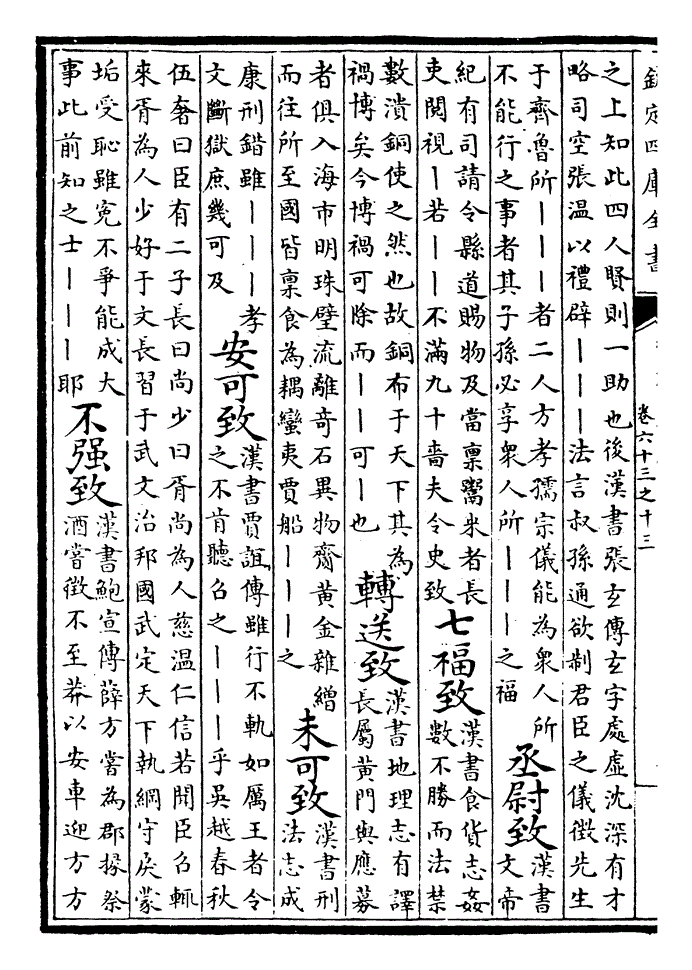 欽定四庫全書
卷六十三之十三
之上知此四人賢則一助也後漢書張玄傳玄字處虛沈深有才
略司空張温以禮辟丨丨丨法言叔孫通欲制君臣之儀徵先生
于齊魯所丨丨丨者二人方孝孺宗儀能為衆人所
不能行之事者其子孫必享衆人所丨丨丨之福
丞尉致
漢書
文帝
紀有司請令縣道賜物及當禀鬻米者長
吏閱視丨若丨丨不滿九十嗇夫令史致
七福致
漢書食貨志姦
數不勝而法禁
數潰銅使之然也故銅布于天下其為
禍博矣今博禍可除而丨丨可丨也
轉送致
漢書地理志有譯
長屬黄門與應募
者俱入海市明珠璧流離竒石異物齎黄金雜繒
而往所至國皆禀食為耦蠻夷賈船丨丨丨之
未可致
漢書刑
法志成
康刑錯雖丨丨丨孝
文斷獄庶幾可及
安可致
漢書賈誼傳雖行不軌如厲王者令
之不肯聽召之丨丨丨乎吳越春秋
伍奢曰臣有二子長曰尚少曰胥尚為人慈温仁信若聞臣召輒
來胥為人少好于文長習于武文治邦國武定天下執綱守戾蒙
垢受恥雖寃不爭能成大
事此前知之士丨丨丨耶
不强致
漢書鮑宣傳薛方嘗為郡掾祭
酒嘗徵不至莽以安車迎方方